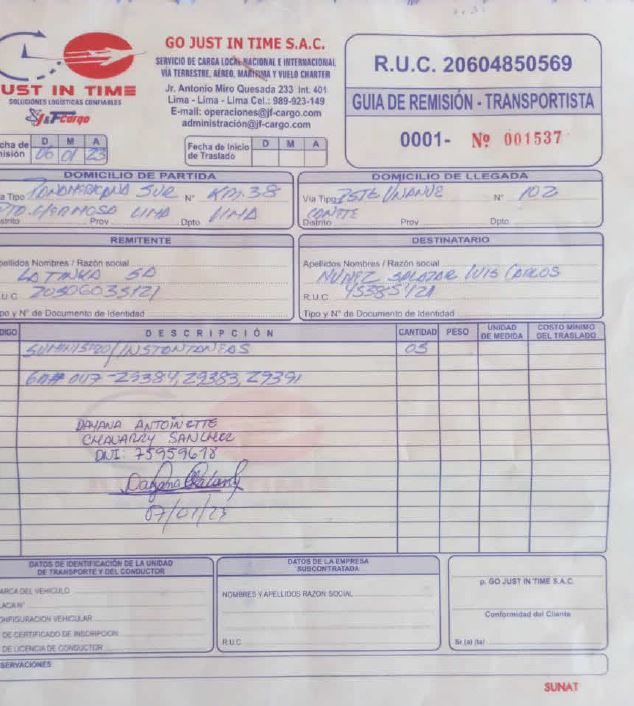 GO JUST IN TIME S.A.C.
SERVICIO DE CARGA LOCAL NACIONAL E INTERNACIONAL
VÍA TERRESTRE, AÉREO, MARÍTIMA Y VUELO CHARTER
Jr. Antonio Miro Quesada 233 Int. 401
Lima - Lima - Lima Cel.: 989-923-149
E-mail: operaciones@jf-cargo.com
administración@jf-cargo.com
UST IN TIME
SOLUCIONES LOGÍSTICAS CONFIABLES
J&F cargo
R.U.C. 20604850569
GUIA DE REMISIÓN - TRANSPORTISTA
0001- Nº 001537
cha de
misión
D M A
06 01 23
Fecha de Inicio
de Traslado
D M A
DOMICILIO DE PARTIDA
a Tipo PANAMERICANA SUR Nº KM. 38
HERMOSA LIMA LIMA
istrito Prov Dpto
DOMICILIO DE LLEGADA
Vía Tipo Nº 102
Distrito Prov. Dpto.
REMITENTE
pellidos Nombres / Razón social
LA TINKA SA
U.C 20506035121
po y N° de Documento de Identidad
DESTINATARIO
Apellidos Nombres / Razón social
NUÑEZ SALAZAR LUIS CARLOS
R.U.C 45385121
Tipo y N° de Documento de Identidad
DIGO DESCRIPCIÓN CANTIDAD PESO UNIDAD DE MEDIDA COSTO MÍNIMO DEL TRASLADO
SUMINISTRO/INSTANTANEAS 03
017-29384, 29383, 29391
DAYANA ANTOINETTE
CHAVARRY SANCHEZ
DNI: 75959618
07/01/23
DATOS DE IDENTIFICACIÓN DE LA UNIDAD
DE TRANSPORTE Y DEL CONDUCTOR
ARCA DEL VEHICULO
LACA N°
ONFIGURACION VEHICULAR
DE CERTIFICADO DE INSCRIPCION
DE LICENCIA DE CONDUCTOR
DATOS DE LA EMPRESA
SUBCONTRATADA
NOMBRES Y APELLIDOS RAZON SOCIAL
R.U.C
p. GO JUST IN TIME S.A.C.
Conformidad del Cliente
Sr.(a) (ta)
SERVACIONES
SUNAT